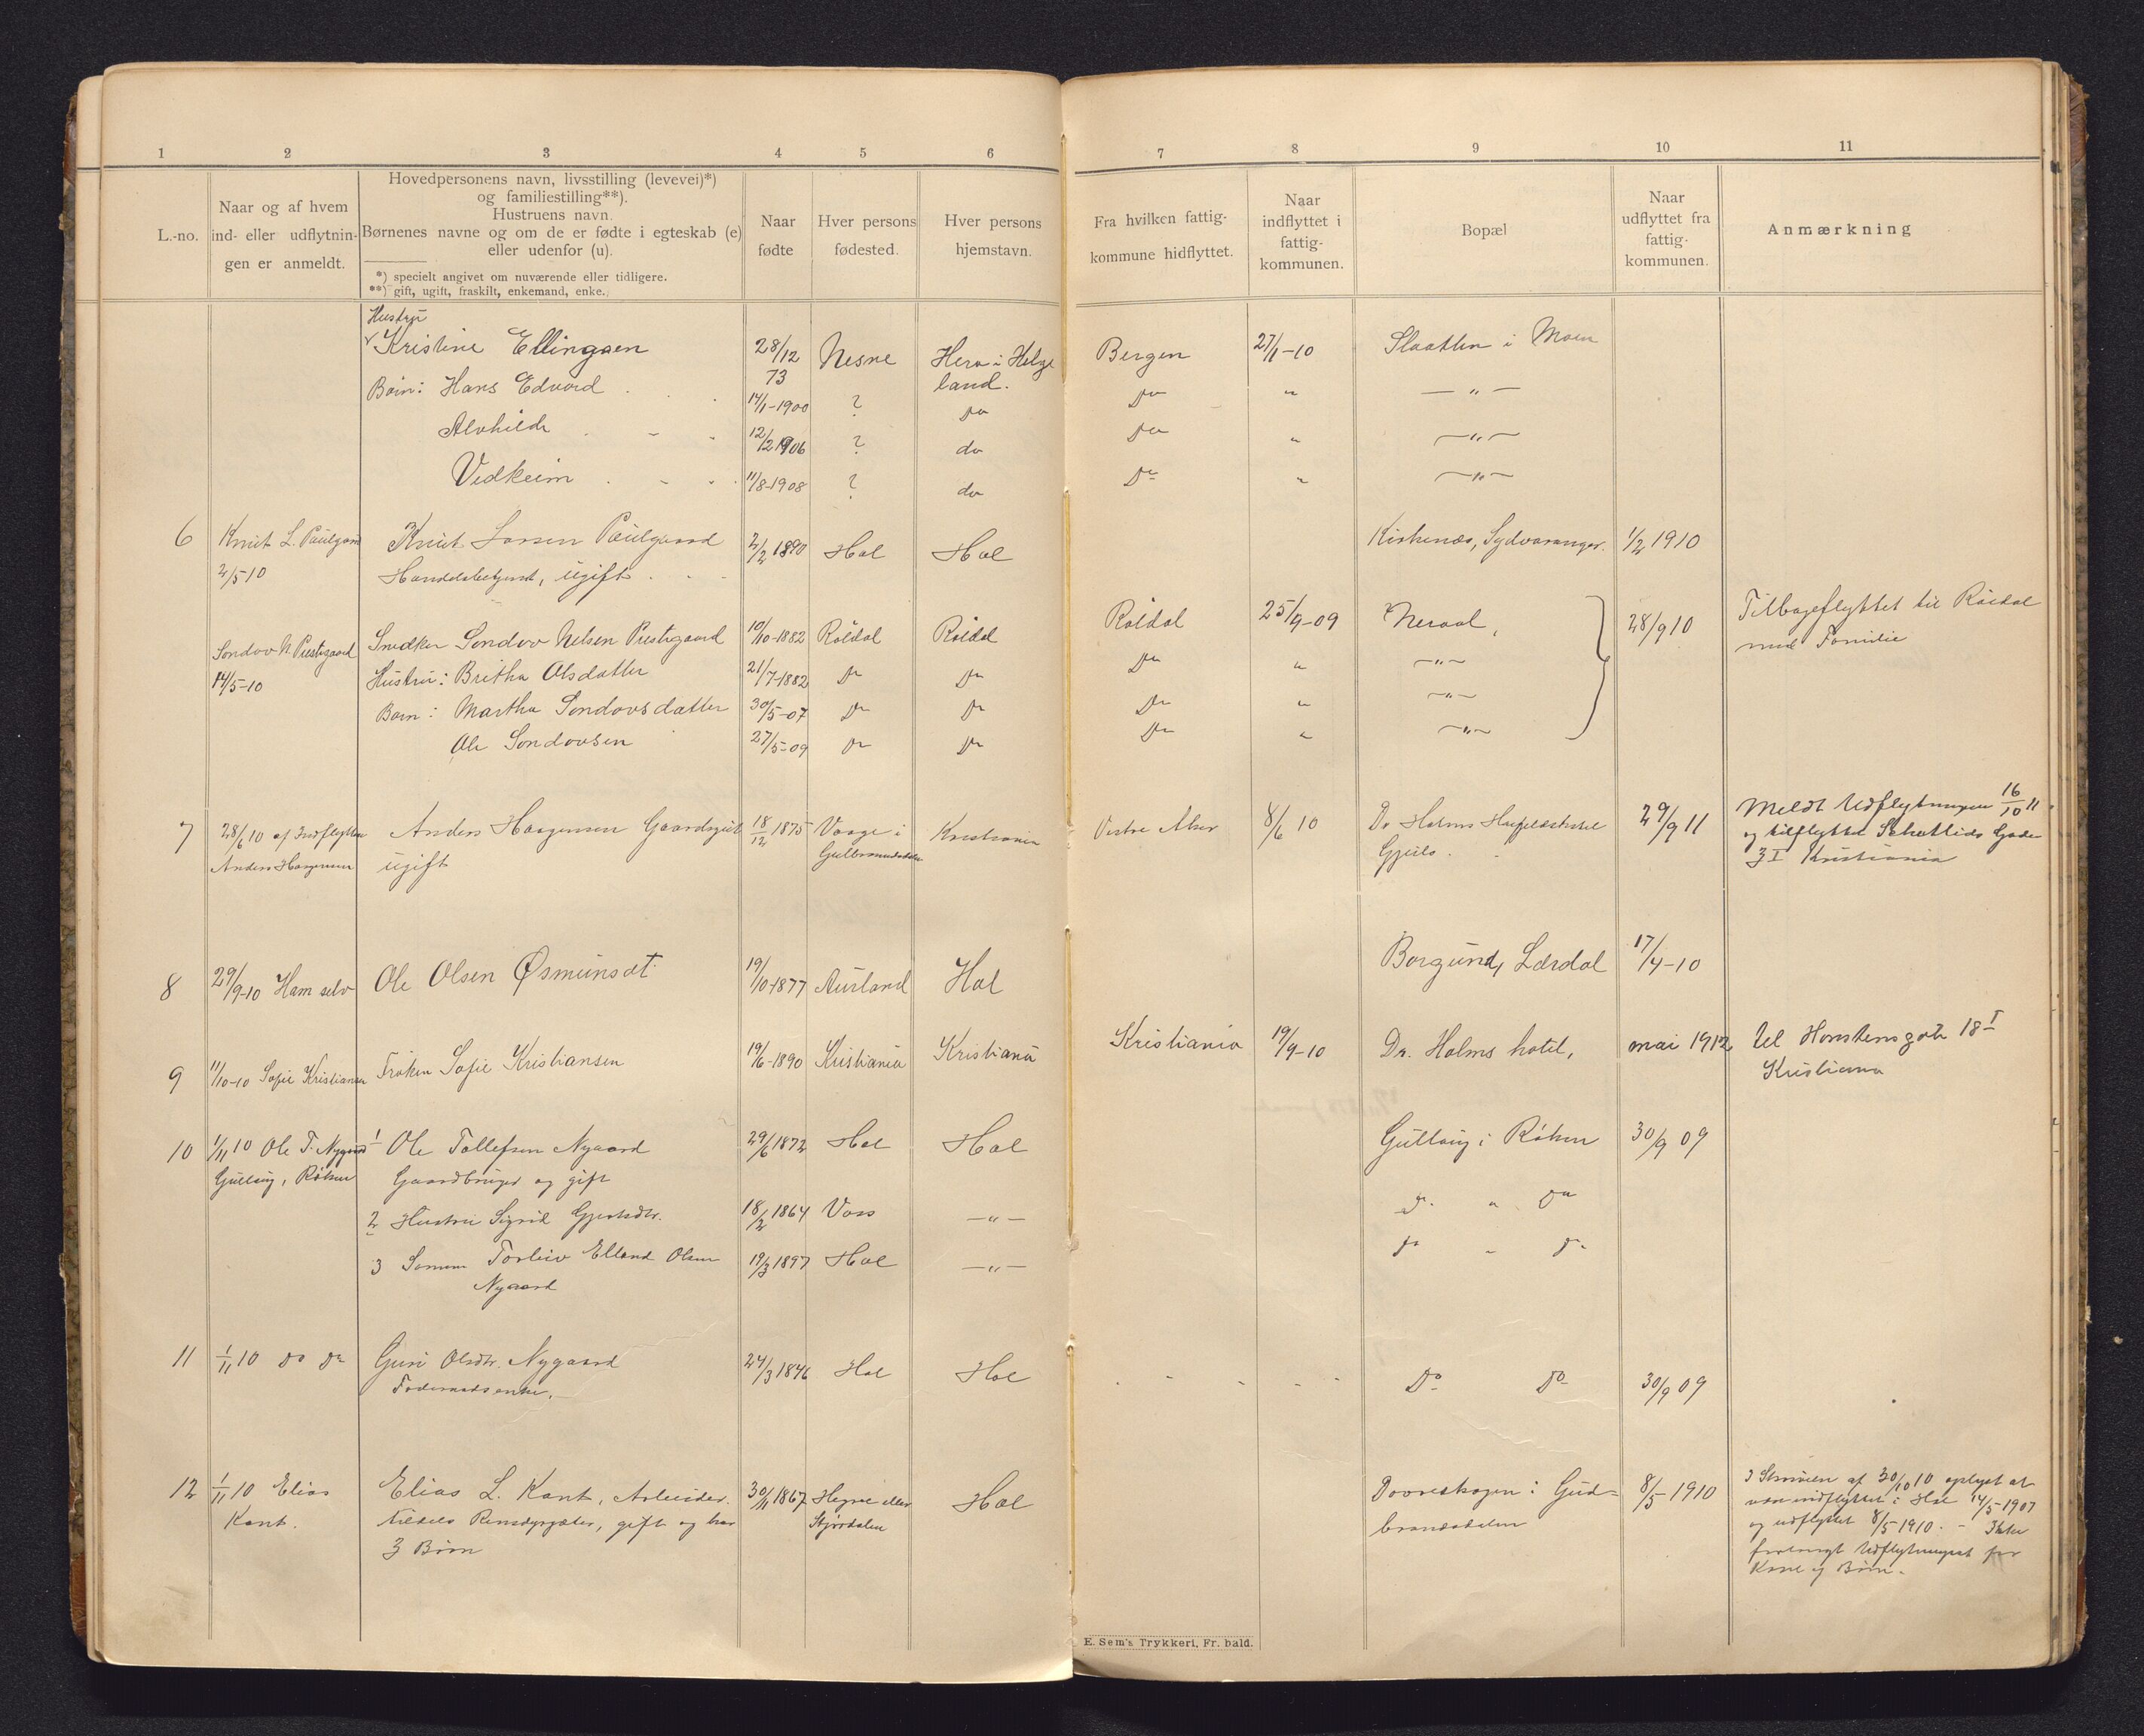 1 2 3 4 5 6 7 8 9 10 11
L.-no.
Naar og af hvem
ind- eller udflytnin-
gen er anmeldt.
Hovedpersonens navn, livsstilling (levevei)*)
og familiestilling**).
Hustruens navn.
Børnenes navne og om de er fødte i egteskab (e)
eller udenfor (u).
*) specielt angivet om nuværende eller tidligere.
**) gift, ugift, fraskilt, enkemand, enke.
Naar
fødte
Hver persons
fødested.
Hver persons
hjemstavn.
Fra hvilken fattig-
kommune hidflyttet.
Naar
indflyttet i
fattig-
kommunen.
Bopæl
Naar
udflyttet fra
fattig-
kommunen.
Anmærkning
Hustru
Kristine Ellingsen 28/12 73 Nesne Herø i Helge
land. Bergen 27/1-10 Slaatten i Moen
Børn: Hans Edvard 14/1-1900 ? do Do " — " —
Alvhilde 12/2 1906 ? do Do " — " —
Vidkeim 11/8-1908 ? do Do " — " —
6 Knut L. Paulgaard Knut Larsen Paulgaard 2/2 1890 Hol Hol Kirkenæs, Sydvaranger. 1/2 1910
2/5-10 Handelsbetjent, ugift
Sondov N. Prestegaard Snedker Sondov Nelsen Prestegaard 10/10-1882 Røldal Røldal Røldal 25/9-09 Neraal, 28/9 10 Tilbageflyttet til Røldal
med Familie
14/5-10 Hustru: Britha Olsdatter 21/7-1882 Do Do Do " — " —
Børn: Martha Sondovsdatter 30/5-07 Do Do Do " — " —
Ole Sondovsen 27/5-09 Do Do Do " — " —
7 28/6 10 af Indflytter Anders Haagensen Gaardsgut 18/12 1875 Vaage i Kristiania Vestre Aker 8/6 10 Dr Holms Høifjeldshotel 29/9 11 Meldt Udflytningen 16/10 11
Anders Haagensen ugift Gulbrandsdalen Gjeilo. og tilflyttet Gade
3 I Kristiania
8 29/9-10 Ham selv Ole Olsen Øsmunset 19/10-1877 Aurland Hol Borgund, Lærdal 17/4-10
9 11/10-10 Sofie Kristiansen Frøken Sofie Kristiansen 19/6-1890 Kristiania Kristiania Kristiania 19/9-10 Dr. Holms hotel, mai 1912 til 18 I
Kristiania
10 1/11 10 Ole T. Nygaard 1 Ole Tollefsen Nygaard 29/6 1872 Hol Hol Gullaug i Røken 30/9 09
Gullaug, Røken Gaardbruger og gift
2 Hustru Sigrid Gjertsdtr. 18/2 1864 Voss — " — Do " Do
3 Sønnen Torleiv Elland Olsen 19/3 1897 Hol — " — Do " Do
Nygaard
11 1/11 10 do do Guri Olsdtr. Nygaard 24/3 1846 Hol Hol Do Do 30/9 09
Føderaadsenke.
12 1/11 10 Elias Elias L. Kant, Arbeider. 30/11 1867 Hegre eller Hol Dovreskogen i Gud- 8/5-1910
Kant. tildels Rensdyrgjæter, gift og har Stjørdalen brandsdalen
3 Børn
I Skrivelse af 30/10 10 oplyst at
være indflyttet i Hol 14/5-1907
og udflyttet 8/5 1910. - Ikke
forlangt Udflytningsat for
Kone og Børn.
E. Sem's Trykkeri, Fr. hald.